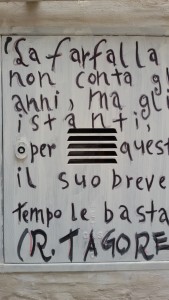 "La farfalla
non conta gli
anni, ma gli
istanti,
per quest
il suo breve
tempo le basta
(R. TAGORE